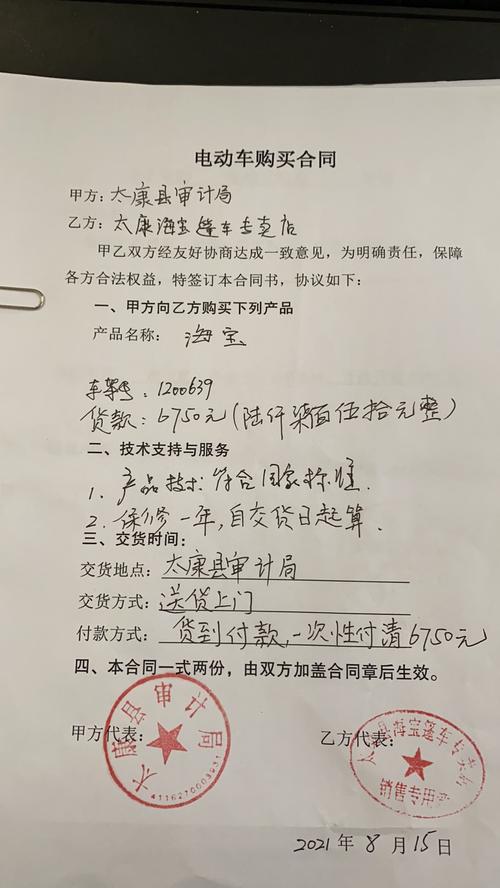 电动车购买合同
甲方：太康县审计局
乙方：太康海宝篷车专卖店
甲乙双方经友好协商达成一致意见，为明确责任，保障
各方合法权益，特签订本合同书，协议如下：
一、甲方向乙方购买下列产品
产品名称： 海宝
车架号：1200639
货款：6750元(陆仟柒百伍拾元整)
二、技术支持与服务
1. 产品技术符合国家标准.
2. 保修一年，自交货日起算.
三、交货时间：
交货地点：太康县审计局
交货方式：送货上门
付款方式：货到付款，一次性付清6750元
四、本合同一式两份，由双方加盖合同章后生效。
甲方代表：
太康县审计局
4116270003931
乙方代表：
太康县海宝篷车专卖店
销售专用章
2021年 8 月 15日